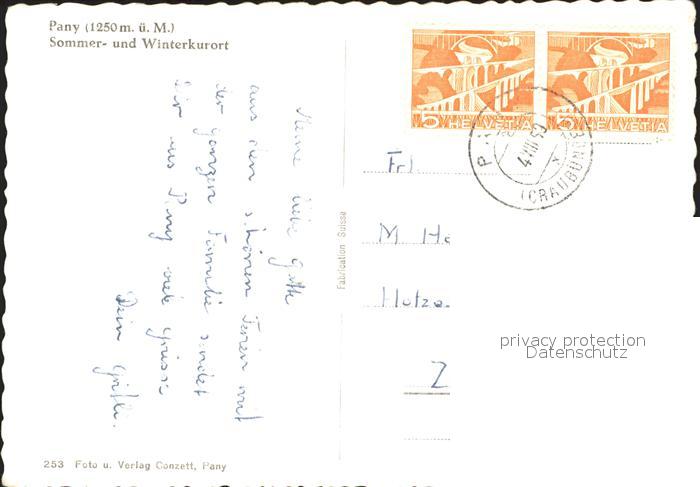 Pany (1250 m. ü. M.)
Sommer- und Winterkurort
Meine liebe Gotte
aus den schönen Ferien mit
der ganzen Familie sendet
Dir aus Pany viele Grüsse
Dein Göttli.
Fabrication Suisse
5 HELVETIA
5 HELVETIA
(GRAUBÜNDEN)
Frl.
M. He
Hotze
Z
privacy protection
Datenschutz
253 Foto u. Verlag Conzett, Pany